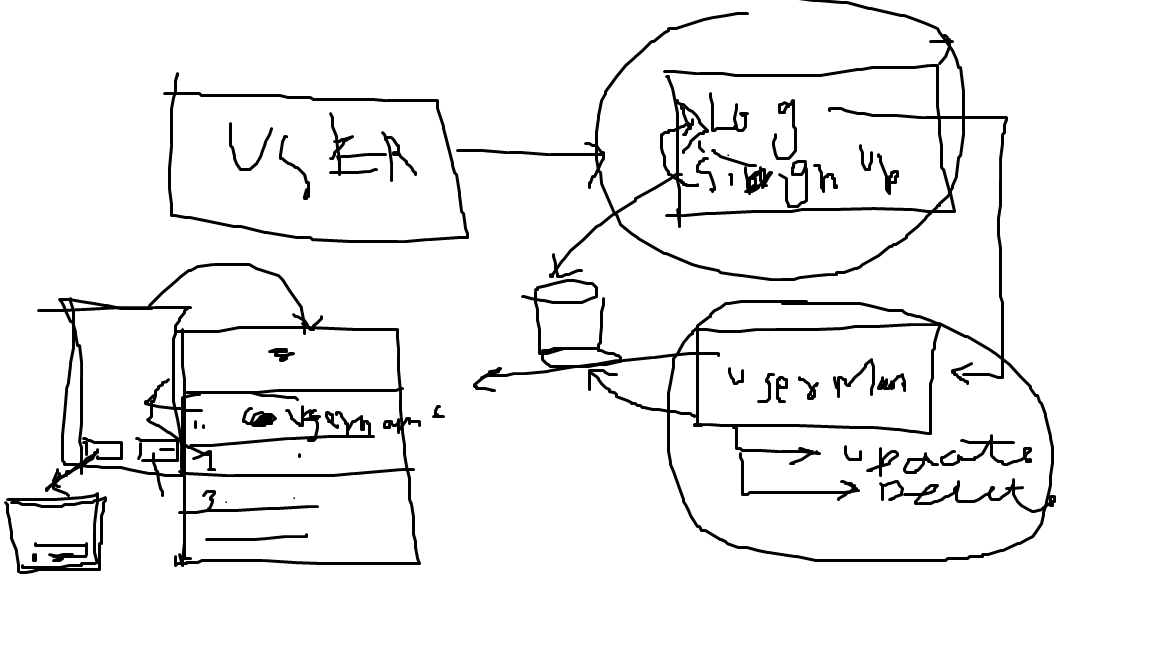 USER
Log
Sign Up
User Man
Update
Delete
1. Username
3.